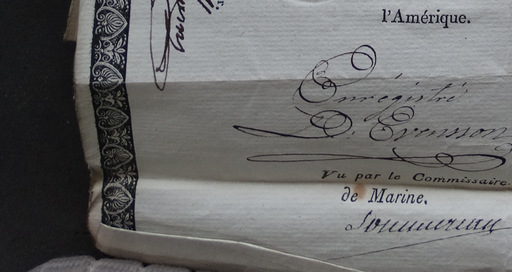 l'Amérique.
Enrégistré
D. Evensson
Vu par le Commissaire
de Marine.